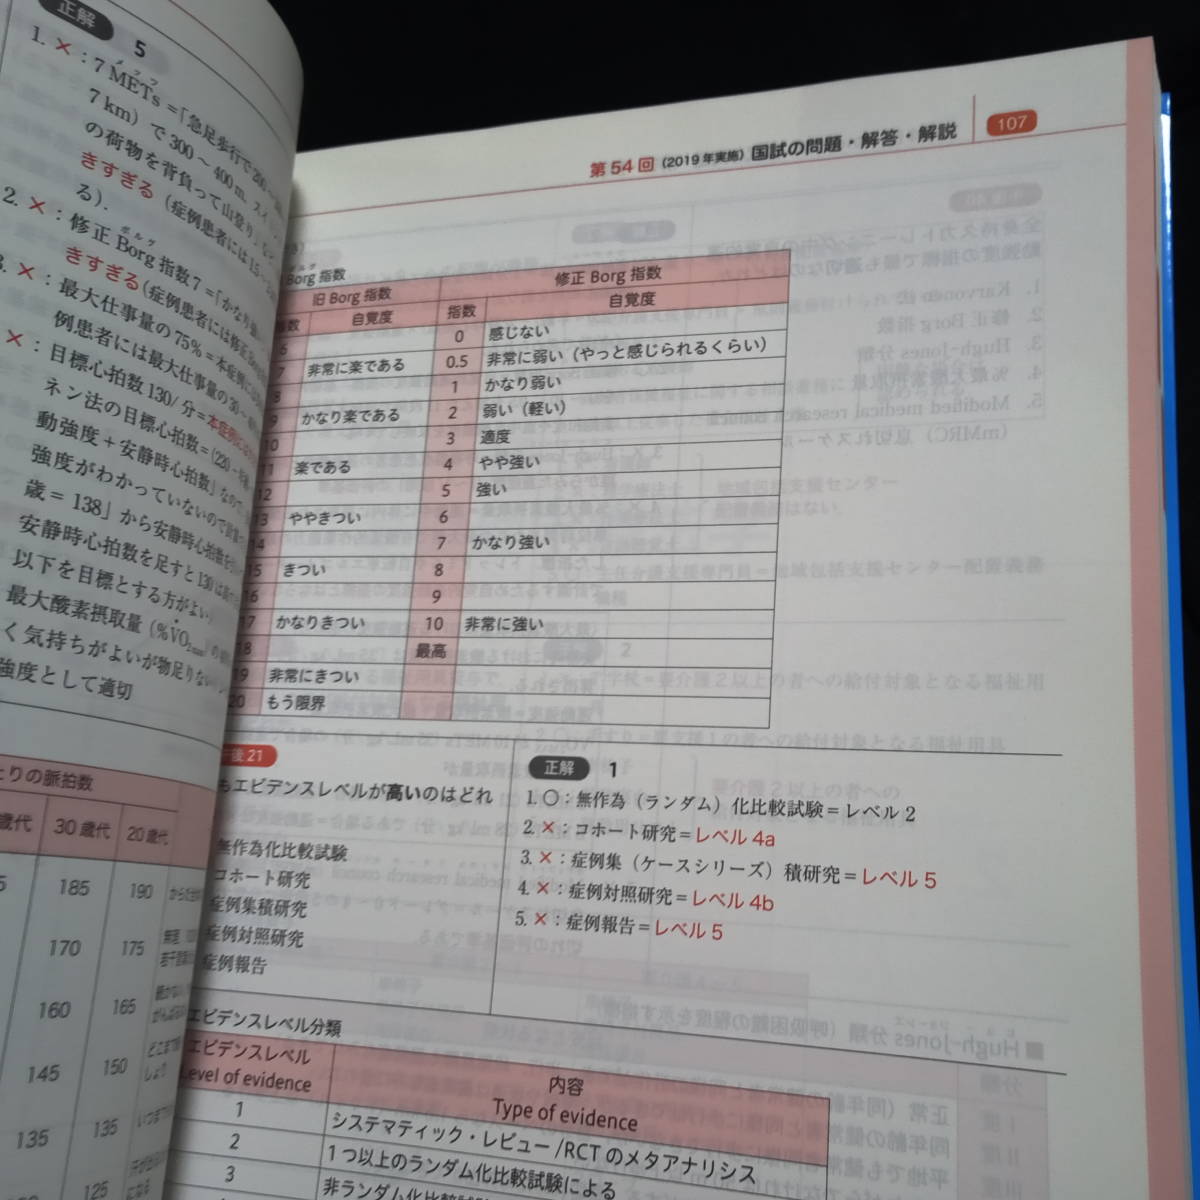 正解 5
1. ×：7 METs＝「急足歩行で200～
7 km）で 300～400 m，スイ
の荷物を背負って山登り」
きすぎる（症例患者には15～
る）．
2. ×：修正 Borg 指数 7＝「かなり強
きすぎる（症例患者には修正 Bor
3. ×：最大仕事量の 75％＝本症例に
例患者には最大仕事量の 30～
×：目標心拍数 130/ 分＝本症例には
ネン法の目標心拍数＝(220－
動強度＋安静時心拍数」なので，
強度がわかっていないので計算
歳＝138」から安静時心拍数を
安静時心拍数を足すと130は
以下を目標とする方がよい
最大酸素摂取量（％V̇O2max）の
く気持ちがよいが物足りない
強度として適切
とりの脈拍数
歳代 30 歳代 20 歳代
5 185 190
170 175
160 165
145 150
135 135
125
第 54 回（2019 年実施）国試の問題・解答・解説 107
Borg 指数
旧 Borg 指数 修正 Borg 指数
指数 自覚度 指数 自覚度
6 0 感じない
7 非常に楽である 0.5 非常に弱い（やっと感じられるくらい）
8 1 かなり弱い
9 かなり楽である 2 弱い（軽い）
10 3 適度
11 楽である 4 やや強い
12 5 強い
13 ややきつい 6
14 7 かなり強い
15 きつい 8
16 9
17 かなりきつい 10 非常に強い
18 最高
19 非常にきつい
20 もう限界
午後 21
もエビデンスレベルが高いのはどれ
無作為化比較試験
コホート研究
症例集積研究
症例対照研究
症例報告
正解 1
1. 〇：無作為（ランダム）化比較試験＝レベル 2
2. ×：コホート研究＝レベル 4a
3. ×：症例集（ケースシリーズ）積研究＝レベル 5
4. ×：症例対照研究＝レベル 4b
5. ×：症例報告＝レベル 5
エビデンスレベル分類
エビデンスレベル 内容
Level of evidence Type of evidence
1 システマティック・レビュー /RCT のメタアナリシス
2 1 つ以上のランダム化比較試験による
3 非ランダム化比較試験